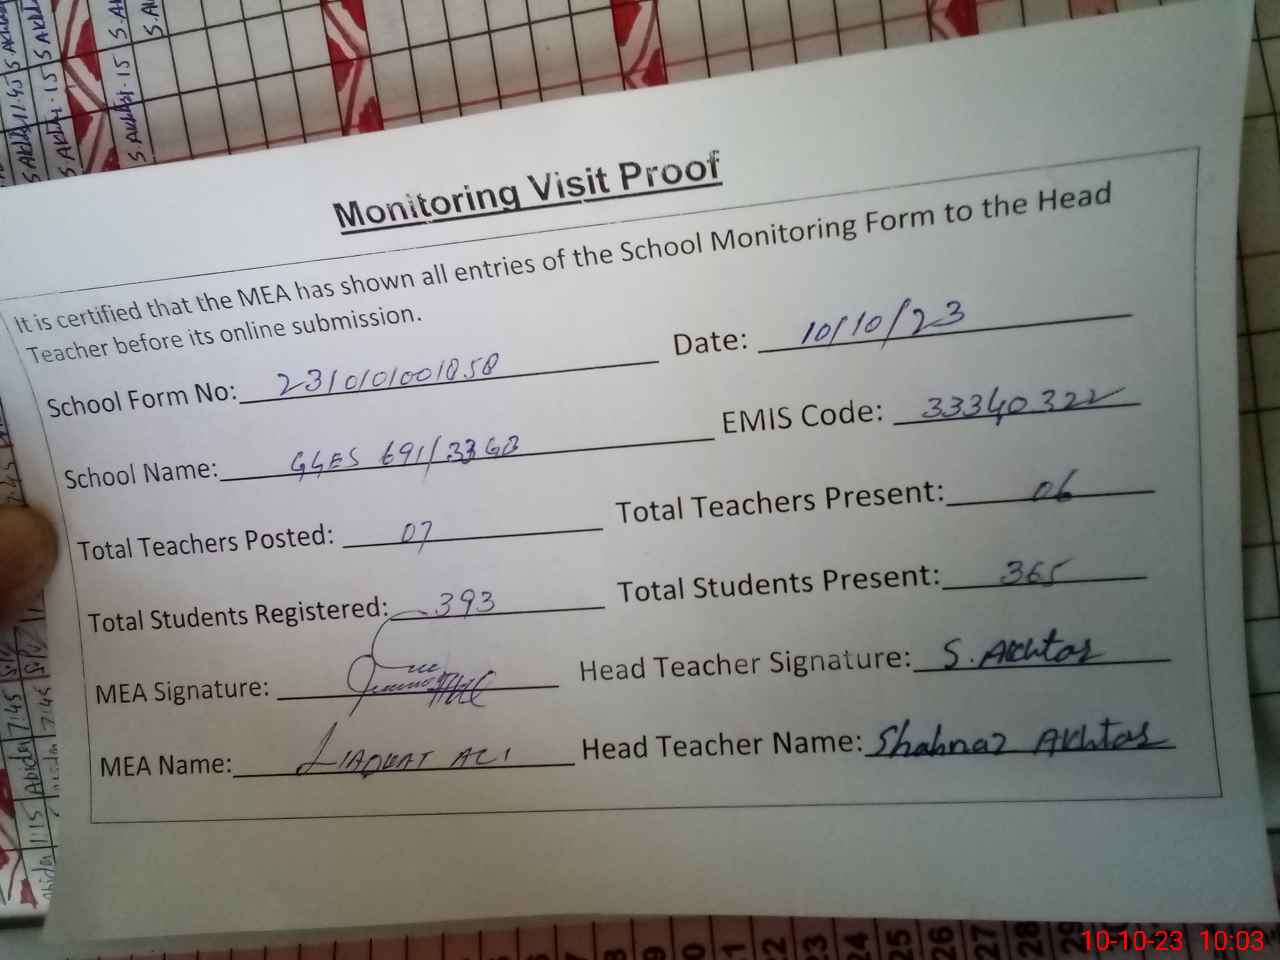 Monitoring Visit Proof
It is certified that the MEA has shown all entries of the School Monitoring Form to the Head
Teacher before its online submission.
School Form No: 2310101001858 Date: 10/10/23
School Name: GGES 691/33GB EMIS Code: 33340322
Total Teachers Posted: 07 Total Teachers Present: 06
Total Students Registered: 393 Total Students Present: 365
MEA Signature: Head Teacher Signature: S. Akhtar
MEA Name: LIAQUAT ALI Head Teacher Name: Shahnaz Akhtar
10-10-23 10:03